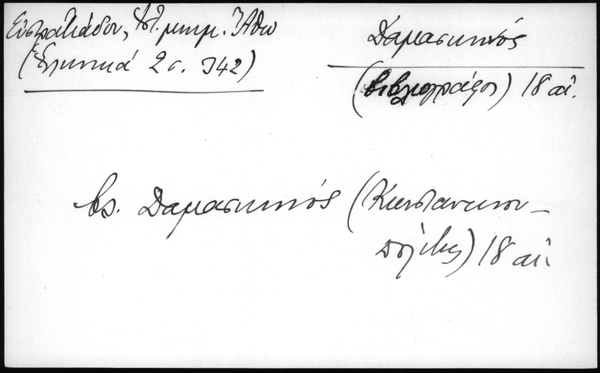 Εὐστρατιάδου, Ἁγ. μνημ. Ἄθω
(Ἑλληνικά 2 σ. 342)
Δαμασκηνός
(βιβλιογράφος) 18 αἰ.
βλ. Δαμασκηνός (Κωνσταντινου-
πολίτης) 18 αἰ.